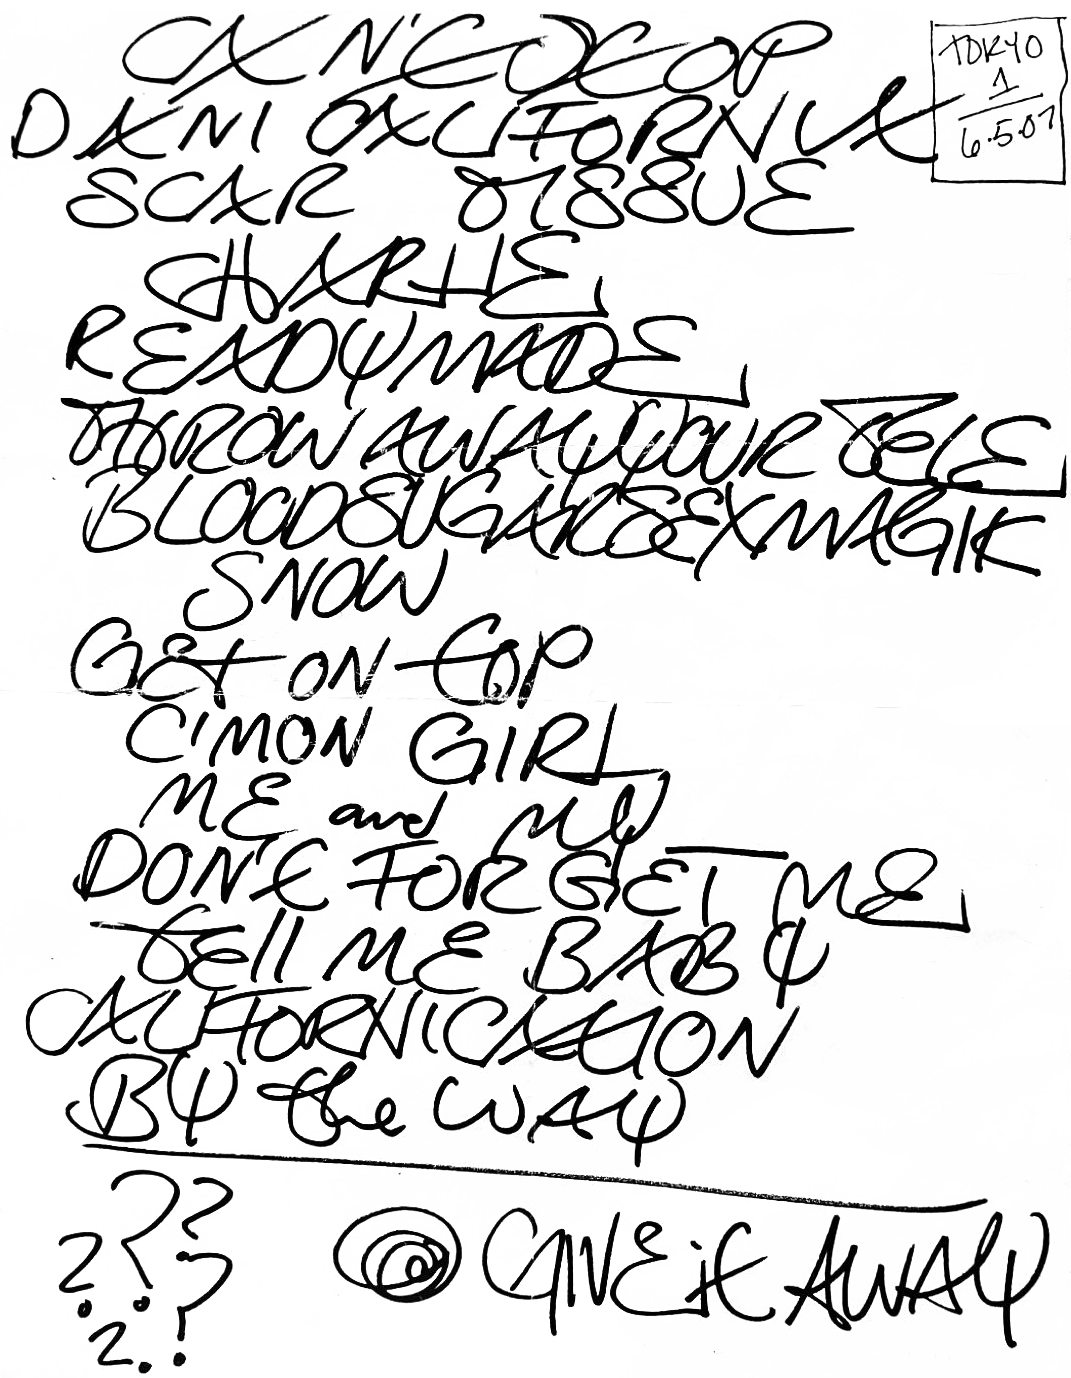 CAN'T STOP
TOKYO
1
6.5.07
DANI CALIFORNIA
SCAR TISSUE
CHARLIE
READYMADE
THROW AWAY YOUR TELE
BLOODSUGARSEXMAGIK
SNOW
GET ON TOP
C'MON GIRL
ME and MY
DON'T FORGET ME
TEll ME BABY
CALIFORNICATION
BY the WAY
??
??
?!
GIVE iT AWAY